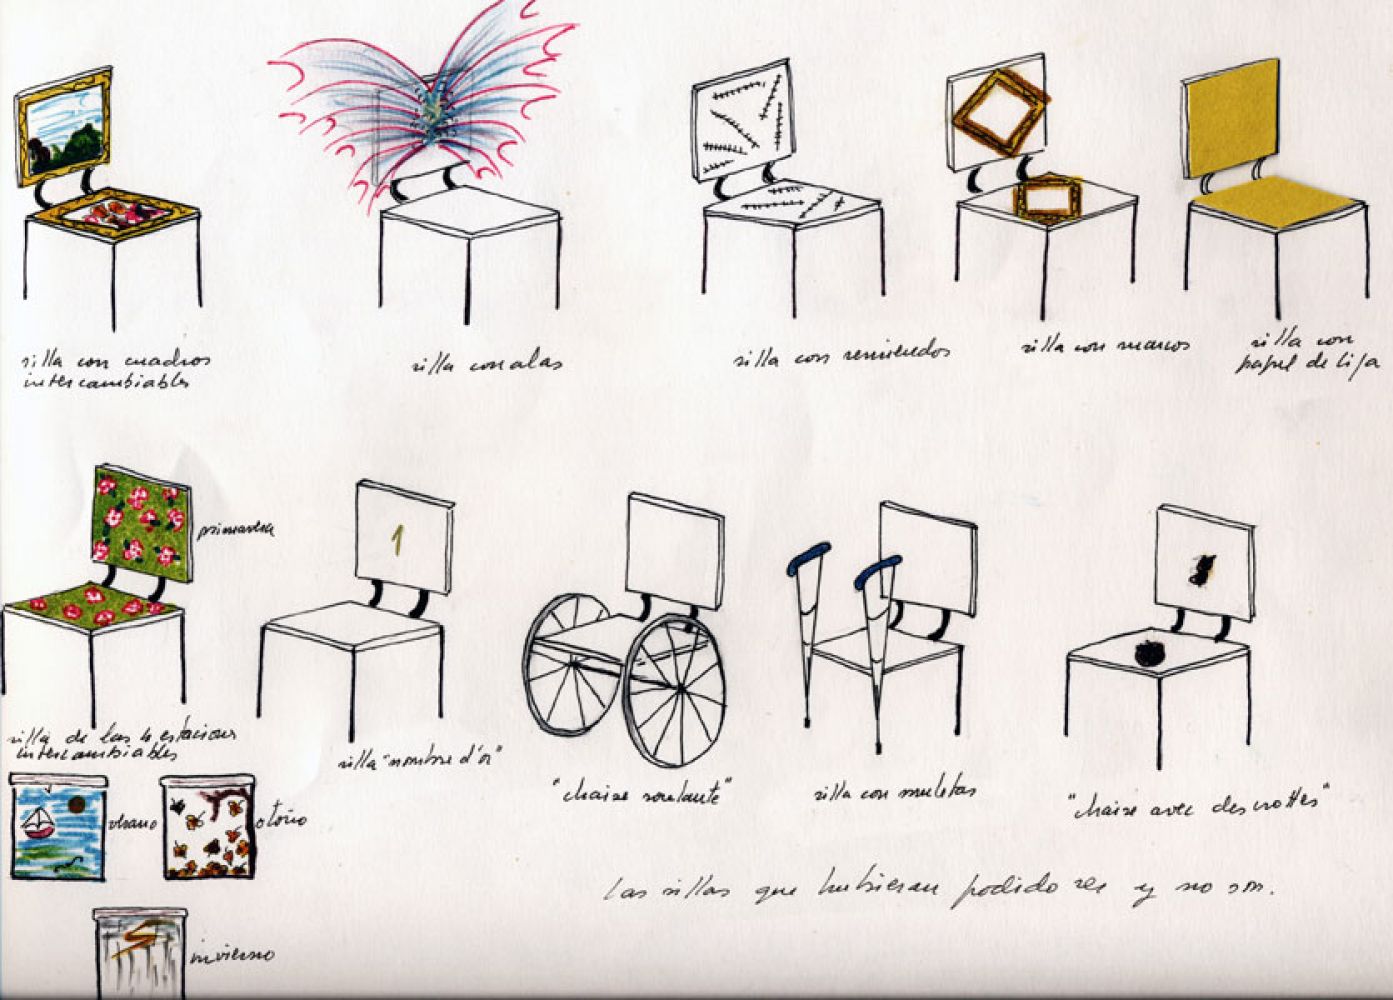 silla con cuadros
intercambiables
silla con alas
silla con remiendos
silla con marcos
silla con
papel de lija
primavera
silla de las 4 estaciones
intercambiables
1
silla "nombre d'or"
"chaise roulante"
silla con muletas
"chaise avec des crottes"
verano
otoño
Las sillas que hubieran podido ser y no son.
invierno